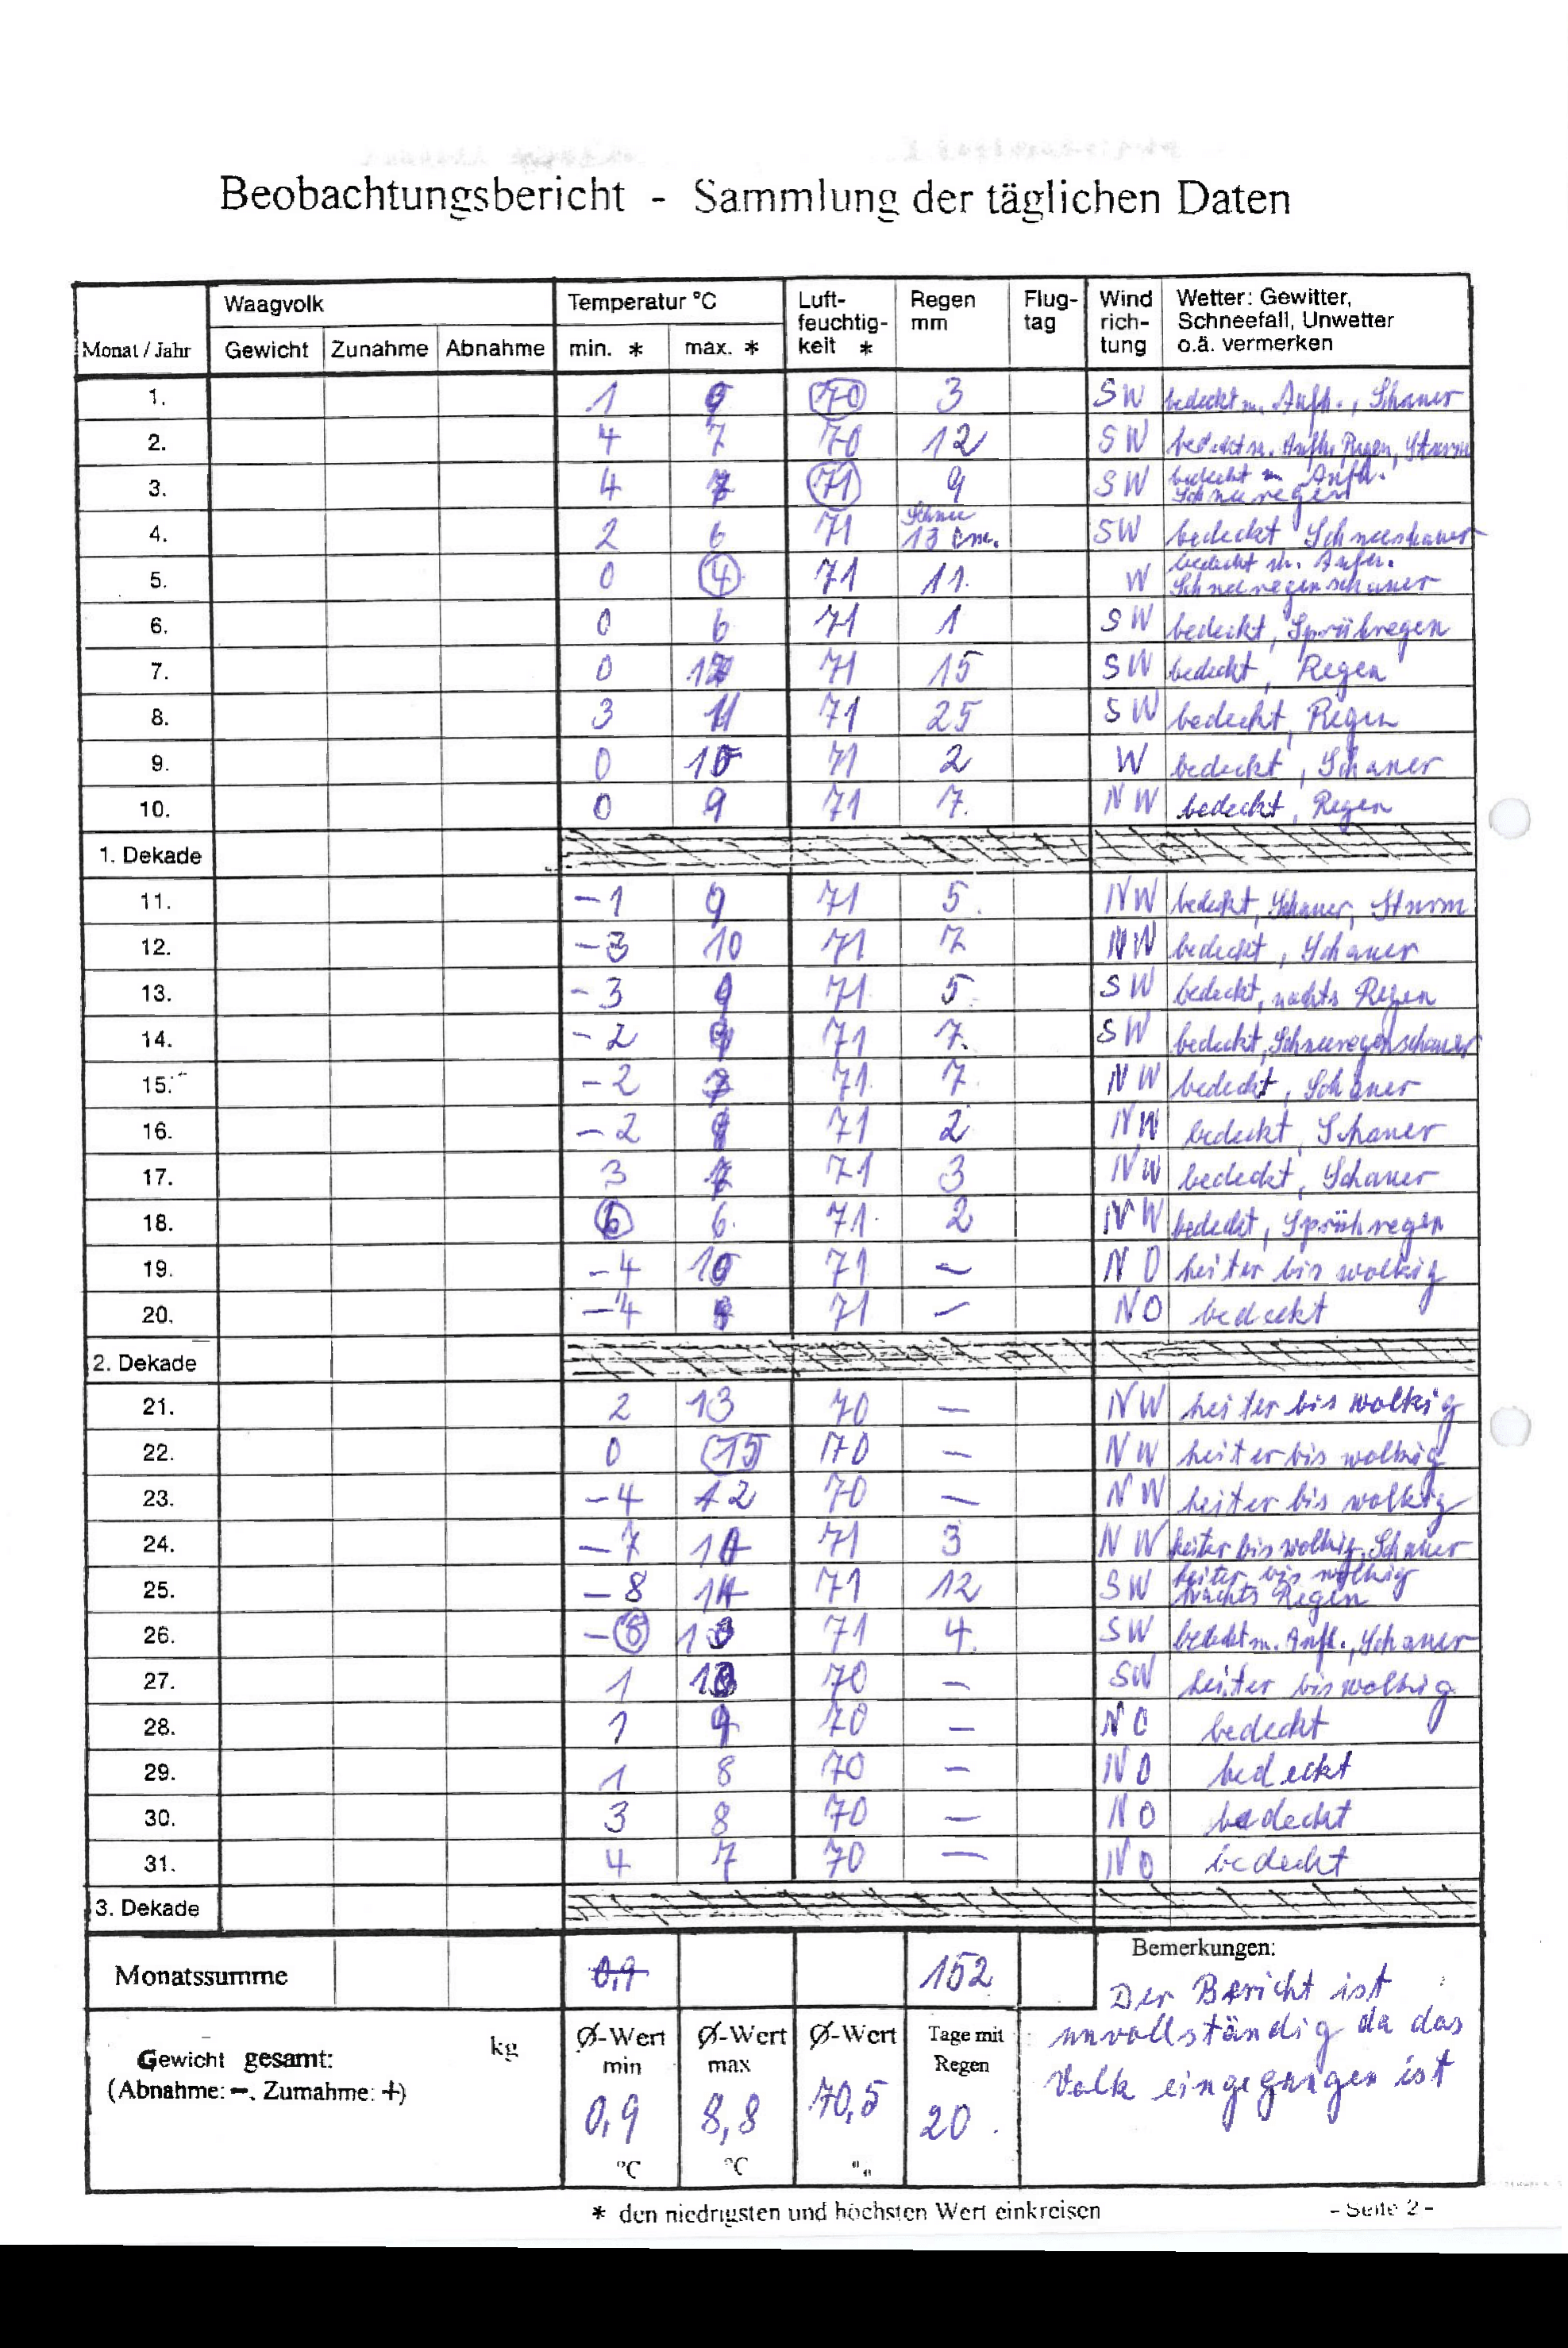 Beobachtungsbericht - Sammlung der täglichen Daten
Monat / Jahr Waagvolk Temperatur °C Luft-feuchtig-keit * Regen mm Flug-tag Wind rich-tung Wetter: Gewitter, Schneefall, Unwetter o.ä. vermerken
Gewicht Zunahme Abnahme min. * max. *
1. 1 9 70 3 SW bedeckt m. Aufh., Schauer
2. 4 7 70 12 SW bedeckt m. Aufh. Regen, Sturm
3. 4 7 71 9 SW bedeckt m. Aufh. Schneeregen
4. 2 6 71 Schnee 13 cm. SW bedeckt Schneeschauer
5. 0 4 71 11. W bedeckt m. Aufh. Schneeregenschauer
6. 0 6 71 1 SW bedeckt, Sprühregen
7. 0 12 71 15 SW bedeckt, Regen
8. 3 11 71 25 SW bedeckt, Regen
9. 0 10 71 2 W bedeckt, Schauer
10. 0 9 71 7. NW bedeckt, Regen
1. Dekade
11. -1 9 71 5. NW bedeckt, Schauer, Sturm
12. -3 10 71 7 NW bedeckt, Schauer
13. -3 9 71 5. SW bedeckt, nachts Regen
14. -2 71 7. SW bedeckt, Schneeregenschauer
15. -2 71 7. NW bedeckt, Schauer
16. -2 71 2 NW bedeckt, Schauer
17. 3 71 3 NW bedeckt, Schauer
18. 6 6. 71. 2 NW bedeckt, Sprühregen
19. -4 10 71 - NO heiter bis wolkig
20. -4 71 - NO bedeckt
2. Dekade
21. 2 13 70 - NW heiter bis wolkig
22. 0 15 70 - NW heiter bis wolkig
23. -4 12 70 - NW heiter bis wolkig
24. -7 71 3 NW heiter bis wolkig, Schauer
25. -8 14 71 12 SW heiter bis wolkig nachts Regen
26. -8 10 71 4. SW bedeckt m. Aufh., Schauer
27. 1 70 - SW heiter bis wolkig
28. 1 9 70 - NO bedeckt
29. 1 8 70 - NO bedeckt
30. 3 8 70 - NO bedeckt
31. 4 7 70 - NO bedeckt
3. Dekade
Monatssumme 0,9 152
Bemerkungen:
Der Bericht ist
unvollständig da das
Volk eingegangen ist
Gewicht gesamt: kg
(Abnahme: -. Zumahme: +)
Ø-Wert min Ø-Wert max Ø-Wert Tage mit Regen
0,9 8,8 70,5 20.
°C °C
* den niedrigsten und höchsten Wert einkreisen
- Seite 2 -